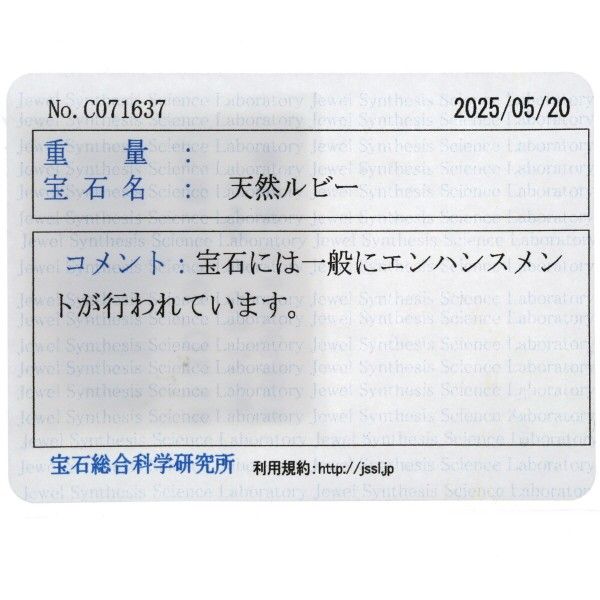 No.C071637 2025/05/20
重　量：
宝石名：　天然ルビー
コメント：宝石には一般にエンハンスメン
トが行われています。
宝石総合科学研究所 利用規約：http://jssl.jp
Jewel Synthesis Science Laboratory Jewel Synthesis Science Laboratory